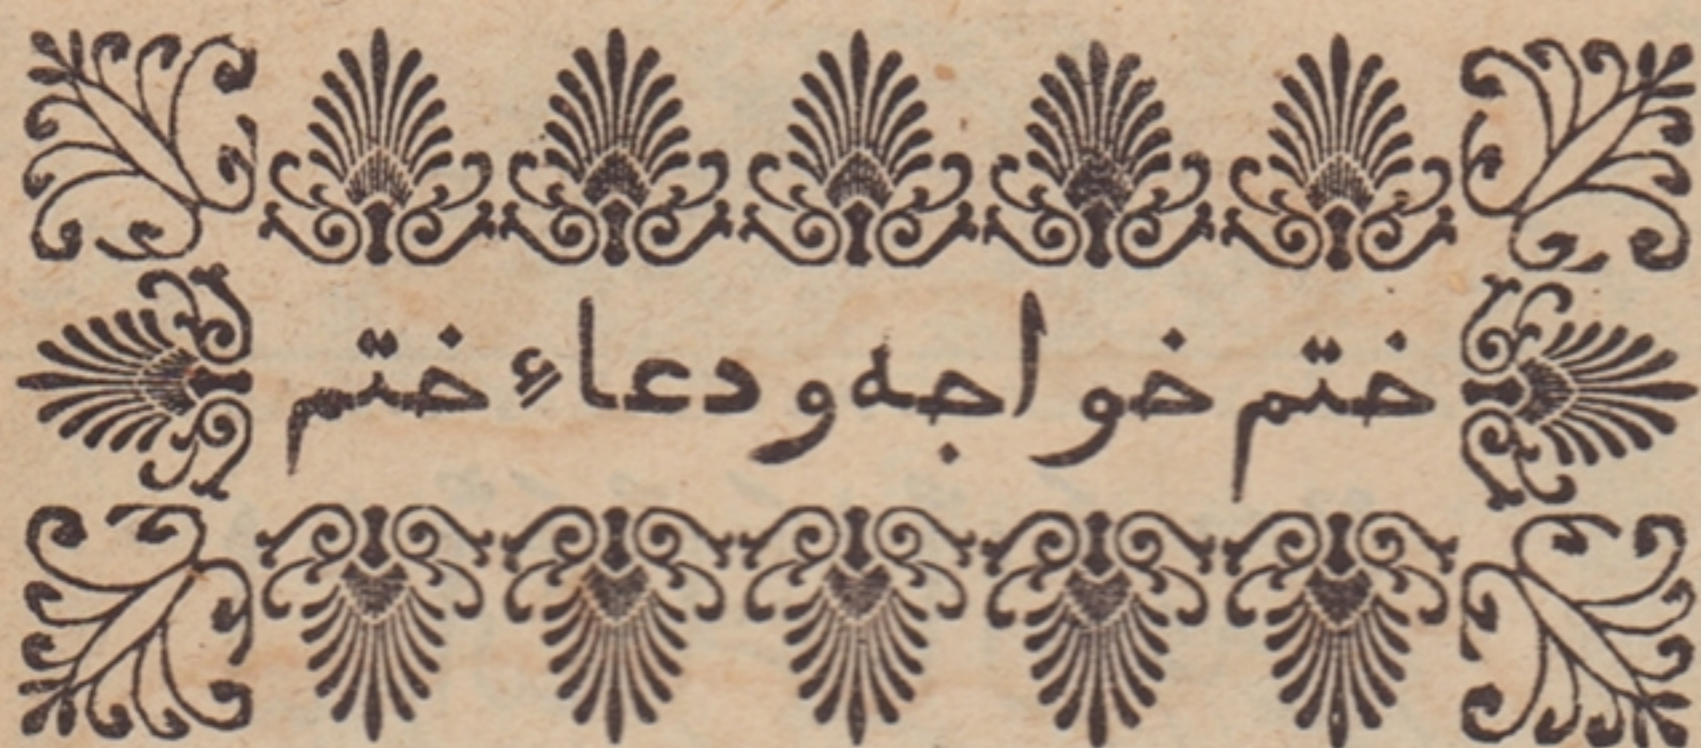 ختم خواجه و دعاءِ ختم